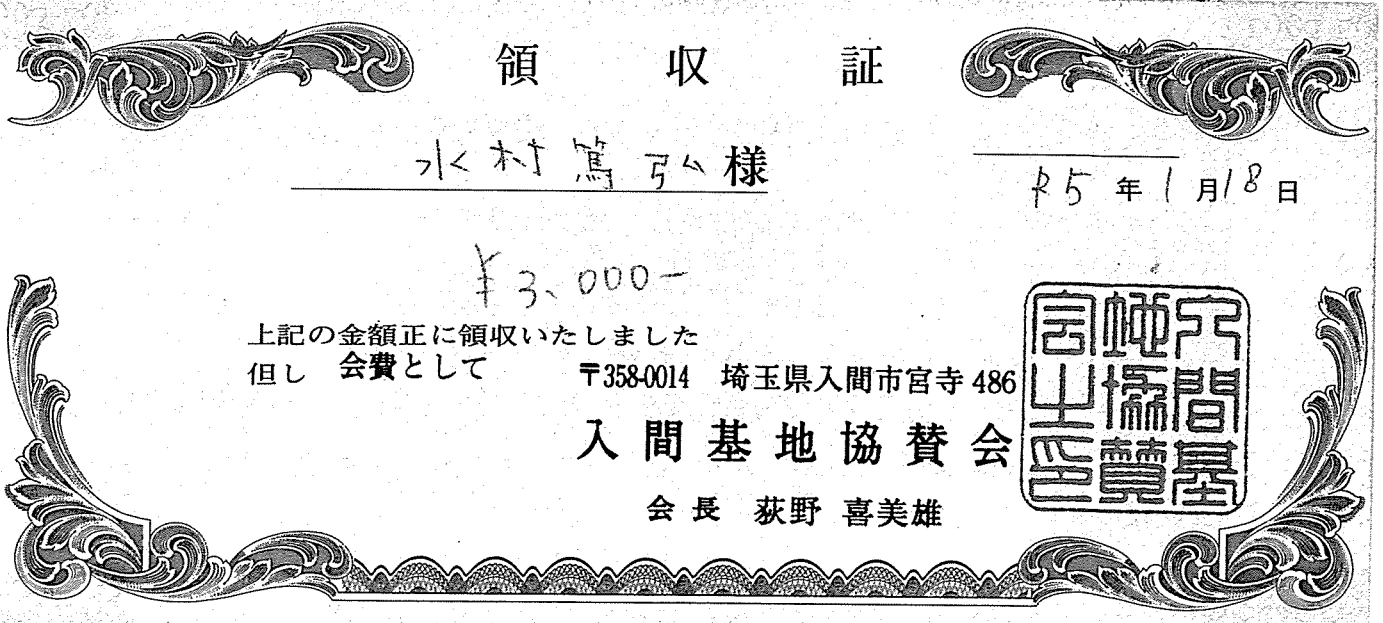 領収証
水村篤弘様
R5年1月18日
¥3,000-
上記の金額正に領収いたしました
但し 会費として
〒358-0014 埼玉県入間市宮寺486
入間基地協賛会
会長 荻野 喜美雄
入間基地協賛会之印